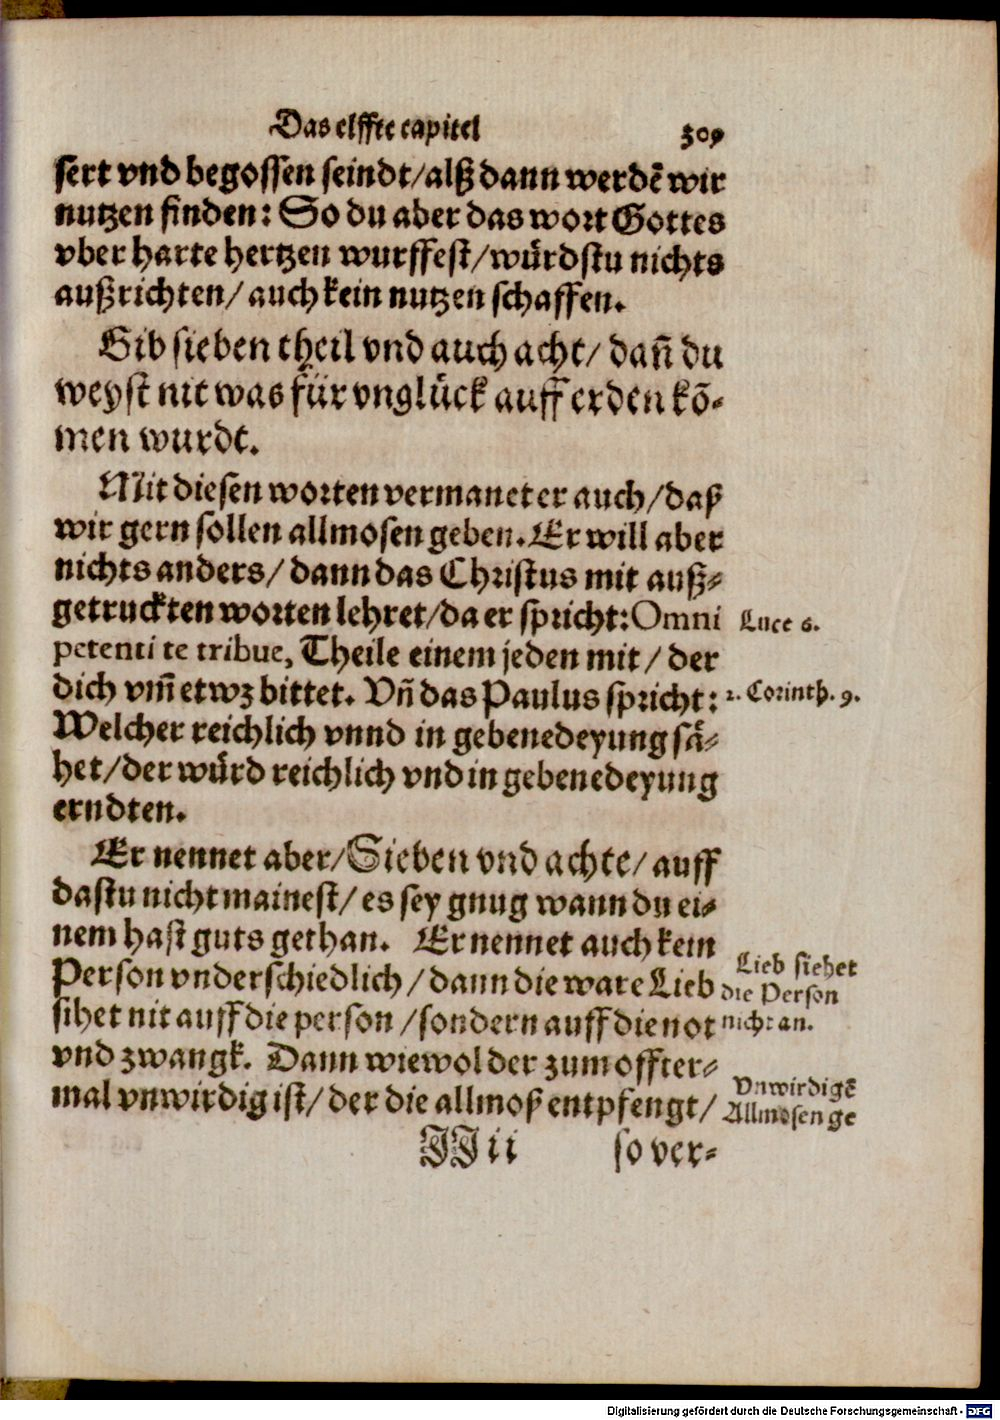 Das elffte capitel 309
sert vnd begossen seindt/alß dann werdẽ wir
nutzen finden: So du aber das wort Gottes
vber harte hertzen wurffest/wuͤrdstu nichts
außrichten/ auch kein nutzen schaffen.
Gib sieben theil vnd auch acht/ dañ du
weyst nit was für vnglück auff erden kõ-
men wurdt.
Mit diesen worten vermanet er auch/daß
wir gern sollen allmosen geben. Er will aber
nichts anders/ dann das Christus mit auß-
getruckten worten lehret/da er spricht: Omni
petenti te tribue, Theile einem jeden mit/ der
dich vm̃ etwz bittet. Vñ das Paulus spricht:
Welcher reichlich vnnd in gebenedeyung saͤ-
het/der wuͤrd reichlich vnd in gebenedeyung
erndten.
Er nennet aber/Sieben vnd achte/ auff
dastu nicht mainest/ es sey gnug wann du ei-
nem hast guts gethan. Er nennet auch kein
Person vnderschiedlich/ dann die ware Lieb
sihet nit auff die person/sondern auff die not
vnd zwangk. Dann wiewol der zum offter-
mal vnwirdig ist/ der die allmoß entpfengt/
JJ ii so ver-
Luce 6.
2. Corinth. 9.
Lieb siehet
die Person
nicht an.
Vnwirdigẽ
Allmosen ge
Digitalisierung gefördert durch die Deutsche Forschungsgemeinschaft - DFG